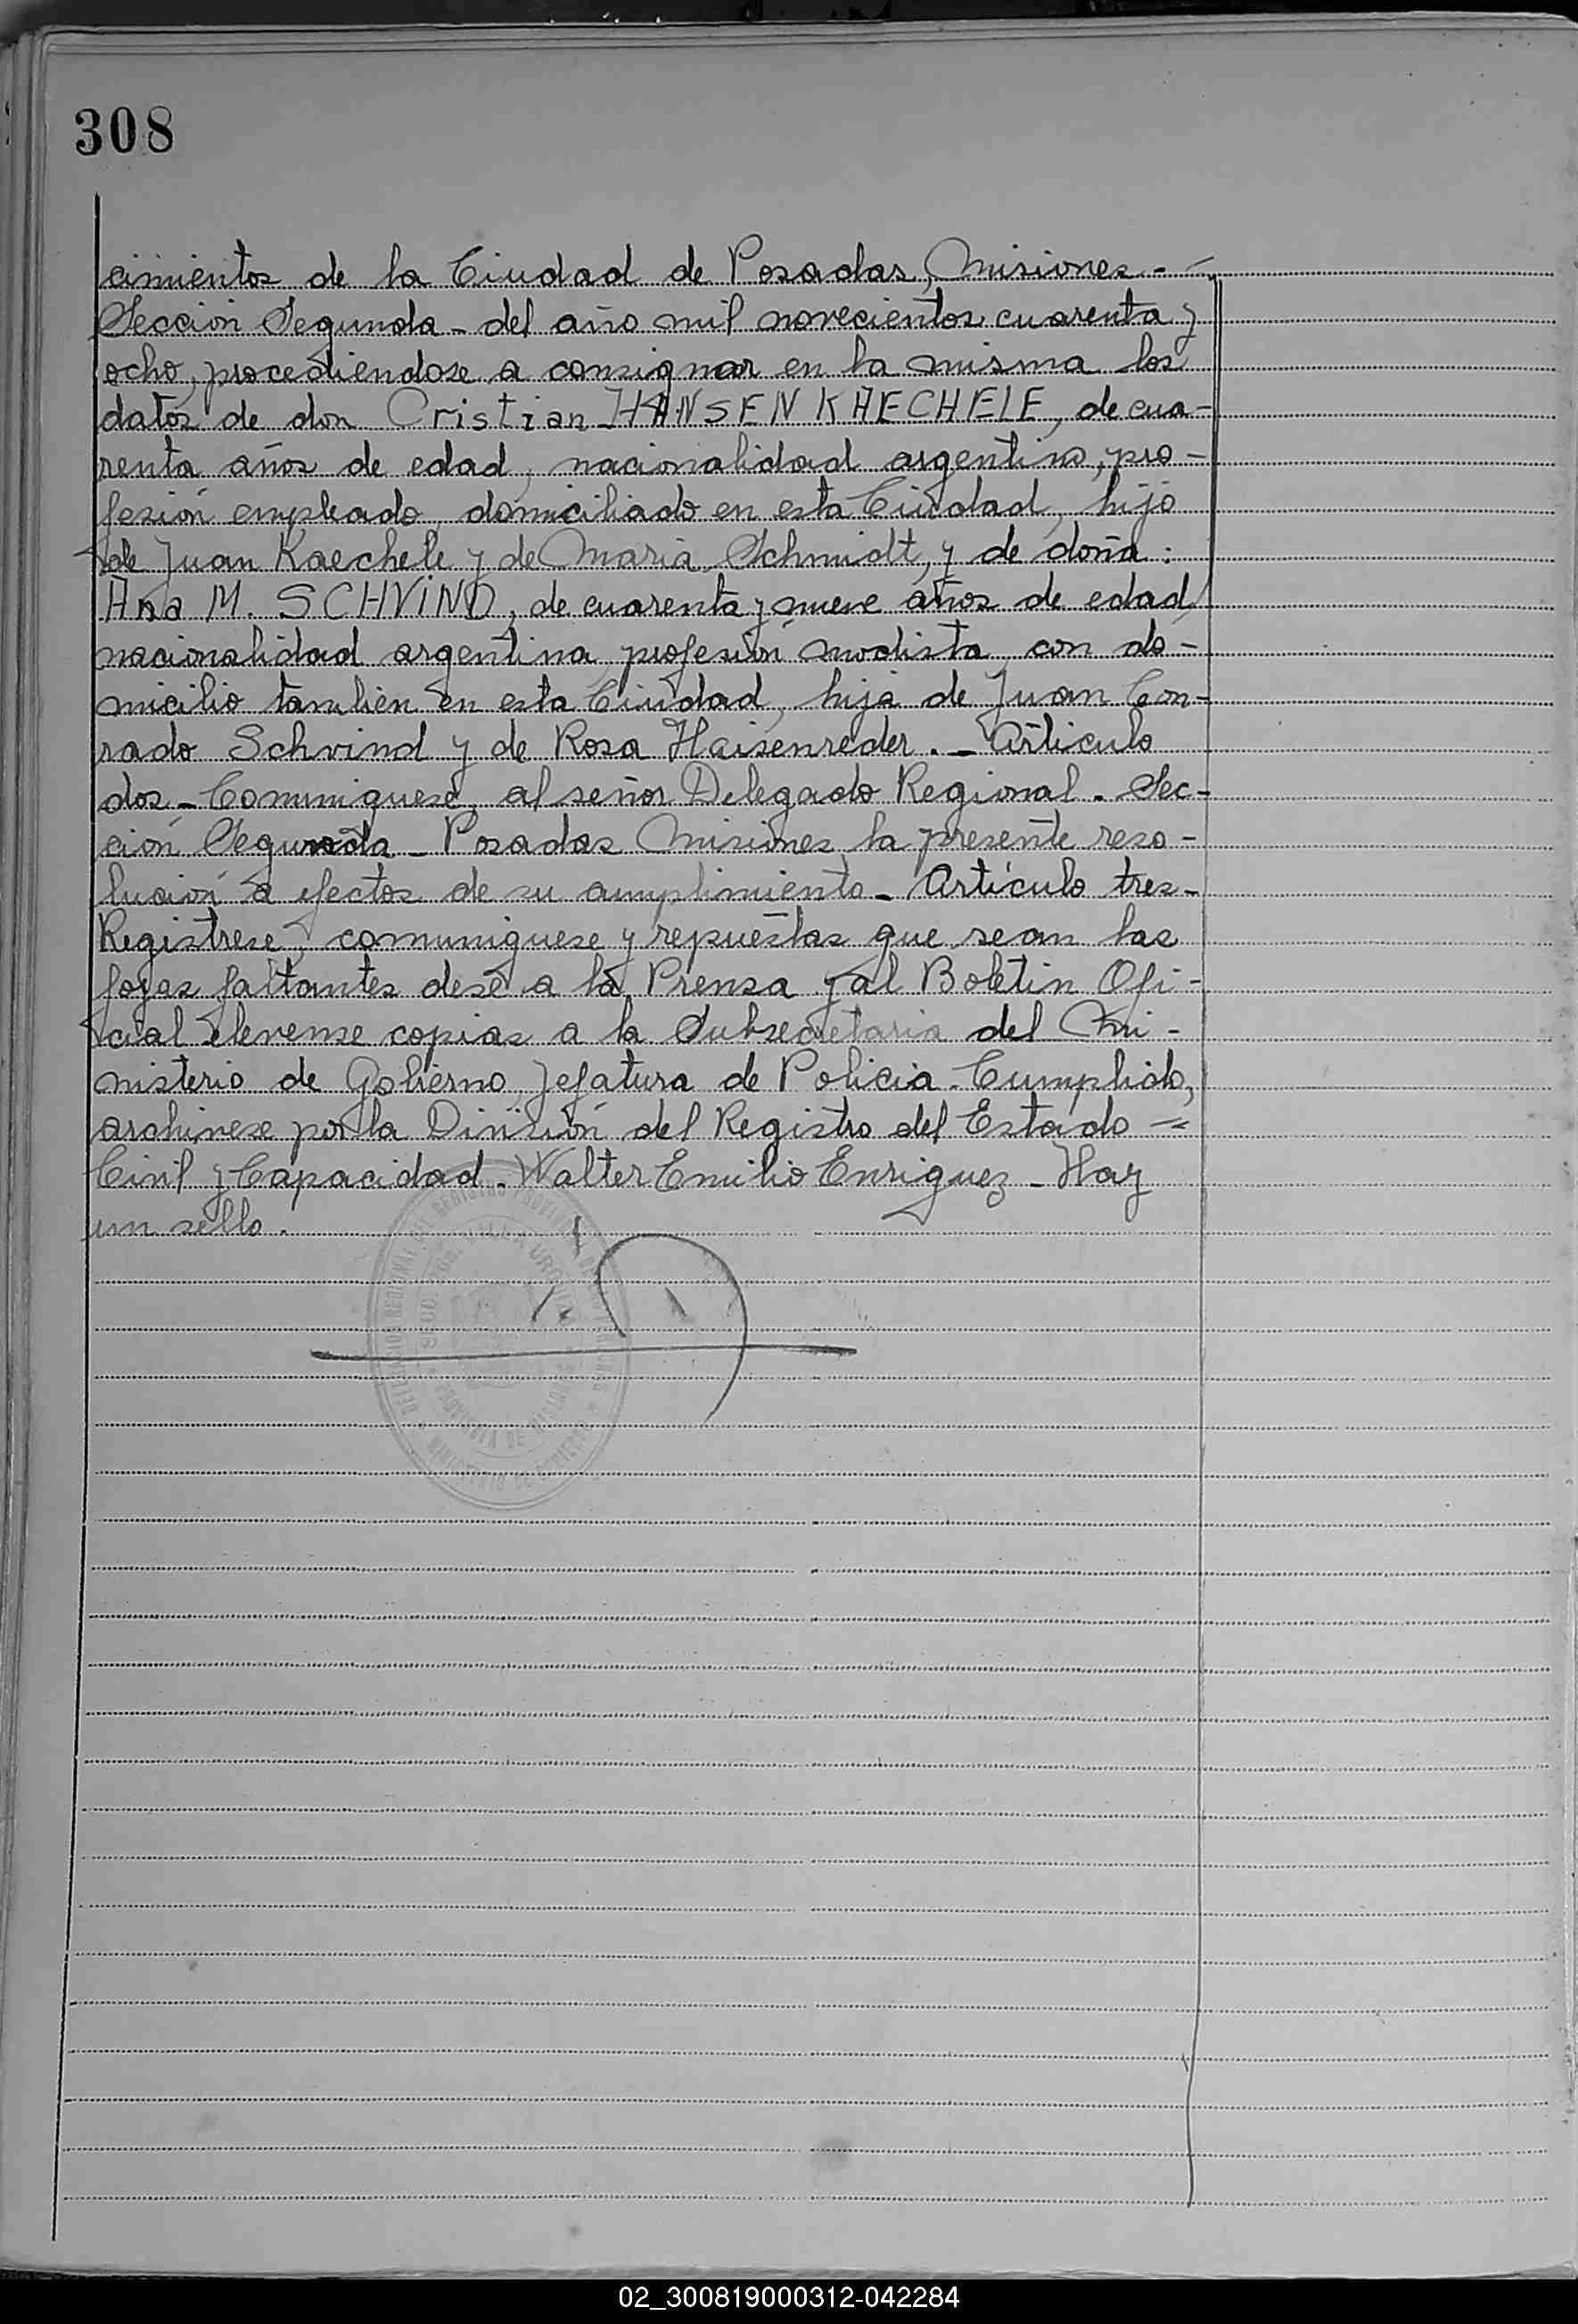 308
cimientos de la Ciudad de Posadas, Misiones.-
Sección Segunda - del año mil novecientos cuarenta y
ocho, procediendose a consignar en la misma los
datos de don Cristian HANSEN KAECHELE, de cua-
renta años de edad, nacionalidad argentino, pro-
fesión empleado, domiciliado en esta Ciudad, hijo
de Juan Kaechele y de Maria Schmidt, y de doña:
Ana M. SCHVIND, de cuarenta y nueve años de edad
nacionalidad argentina, profesión modista, con do-
micilio tambien en esta Ciudad, hija de Juan Con-
rado Schvind y de Rosa Haisenreder. - Artículo
dos - Comuniquese, al señor Delegado Regional. Sec-
ción Segunda - Posadas Misiones la presente reso-
lución a efectos de su cumplimiento - Artículo tres-
Registrese, comuniquese y repuestas que sean las
fojas faltantes dese a la Prensa y al Boletin Ofi-
cial elevense copias a la Subsecretaria del Mi-
nisterio de Gobierno, Jefatura de Policia. Cumplido,
archivese por la División del Registro del Estado =
Civil y Capacidad. Walter Emilio Enriquez - Hay
un sello.
02_300819000312-042284